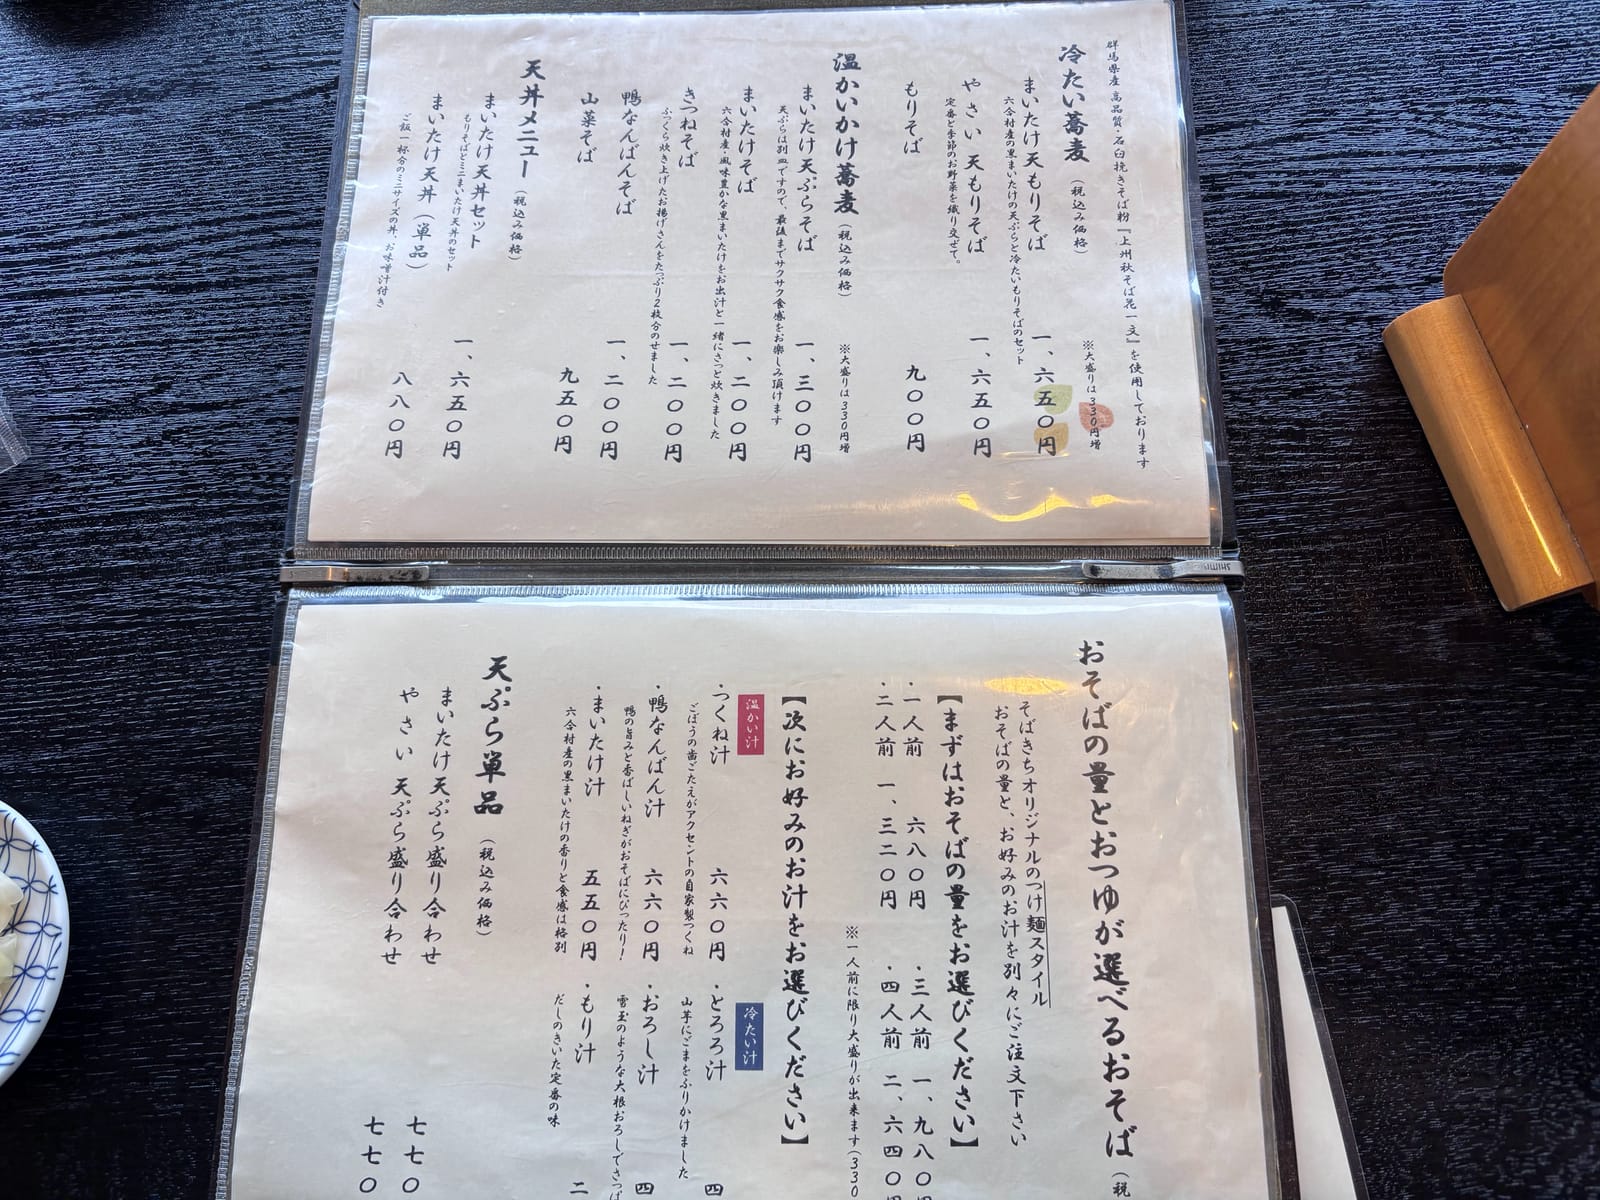 群馬県産 高品質・石臼挽きそば粉『上州秋そば花一文』を使用しております
冷たい蕎麦（税込み価格）
※大盛りは330円増
まいたけ天もりそば 一、六五〇円
六合村産の黒まいたけの天ぷらと冷たいもりそばのセット
やさい天もりそば 一、六五〇円
定番と季節のお野菜を織り交ぜて。
もりそば 九〇〇円
温かいかけ蕎麦（税込み価格）
※大盛りは330円増
まいたけ天ぷらそば 一、三〇〇円
天ぷらは別皿ですので、最後までサクサク食感をお楽しみ頂けます
まいたけそば 一、二〇〇円
六合村産・風味豊かな黒まいたけをお出汁と一緒にさっと炊きました
きつねそば 一、二〇〇円
ふっくら炊き上げたお揚げさんをたっぷり2枚分のせました
鴨なんばんそば 一、二〇〇円
山菜そば 九五〇円
天丼メニュー（税込み価格）
まいたけ天丼セット 一、六五〇円
もりそばとミニまいたけ天丼のセット
まいたけ天丼（単品） 八八〇円
ご飯一杯分のミニサイズの丼、お味噌汁付き
おそばの量とおつゆが選べるおそば（税
そばきちオリジナルのつけ麺スタイル
おそばの量と、お好みのお汁を別々にご注文下さい
【まずはおそばの量をお選びください】
・一人前 六八〇円
・二人前 一、三二〇円
・三人前 一、九八〇円
・四人前 二、六四〇円
※一人前に限り大盛りが出来ます（330
【次にお好みのお汁をお選びください】
温かい汁
・つくね汁 六六〇円
ごぼうの歯ごたえがアクセントの自家製つくね
・鴨なんばん汁 六六〇円
鴨の旨みと香ばしいねぎがおそばにぴったり！
・まいたけ汁 五五〇円
六合村産の黒まいたけの香りと食感は格別
冷たい汁
・とろろ汁 四
山芋にごまをふりかけました
・おろし汁 四
雪玉のような大根おろしでさっぱ
・もり汁 二
だしのきいた定番の味
天ぷら単品（税込み価格）
まいたけ天ぷら盛り合わせ 七七〇
やさい天ぷら盛り合わせ 七七〇